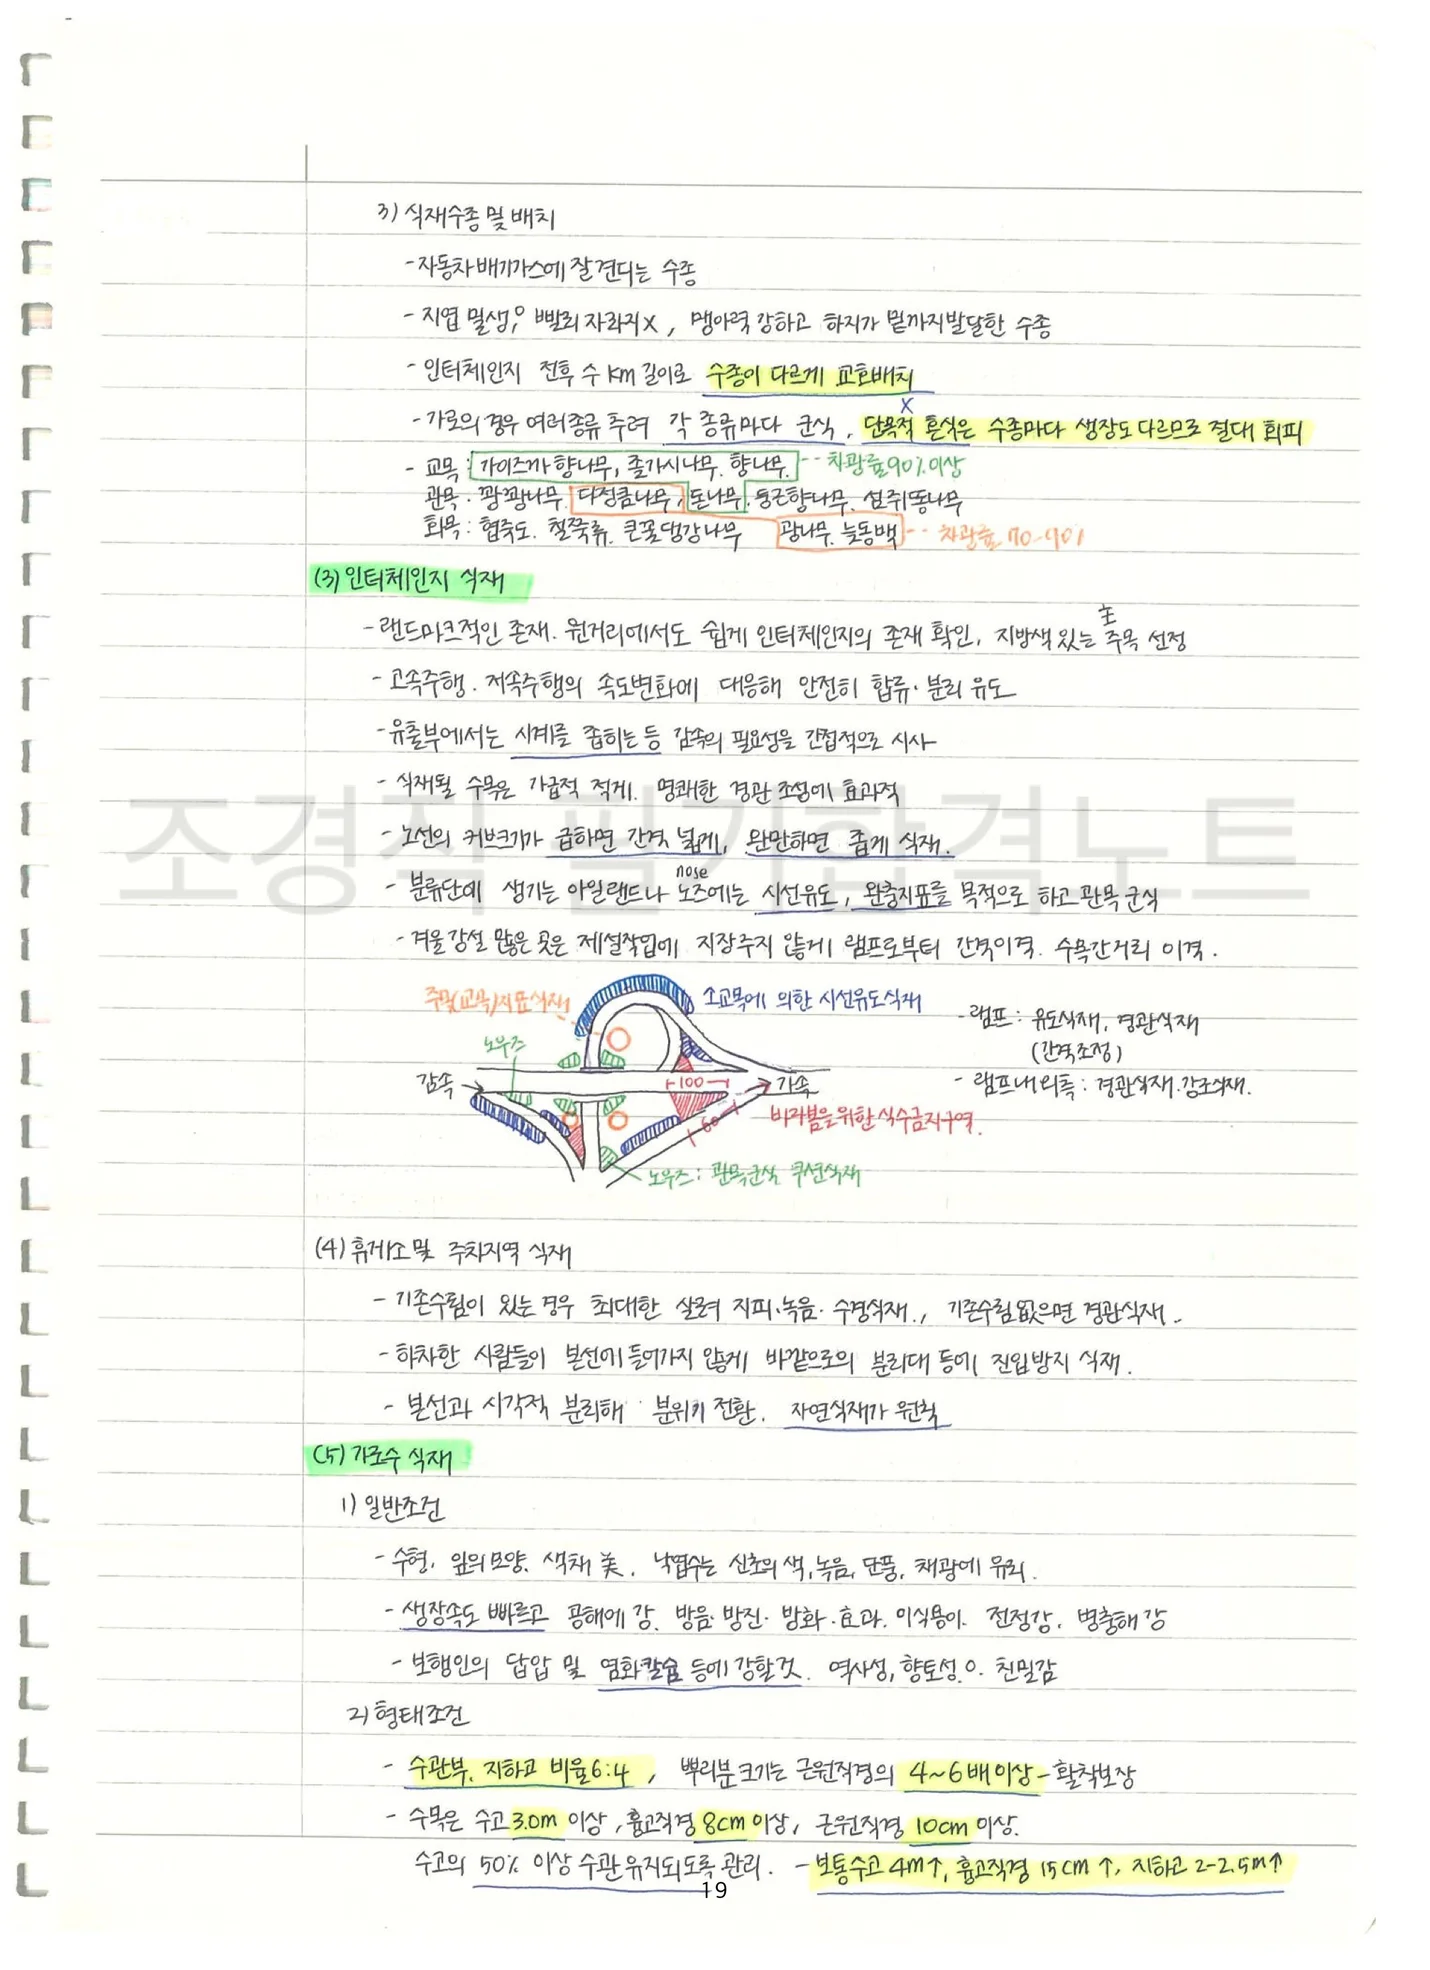 3) 식재수종 및 배치
- 자동차 배기가스에 잘 견디는 수종
- 지엽 밀생, 빨리 자라지 X, 맹아력 강하고 하지가 밑까지 발달한 수종
- 인터체인지 전후 수 km 길이로 수종이 다르게 교호배치
X
- 가로의 경우 여러종류 추려 각 종류마다 군식. 단목적 혼식은 수종마다 생장도 다르므로 절대 회피
- 교목 : 가이즈까 향나무, 졸가시나무. 향나무. -- 차광률 90% 이상
관목. 꽝꽝나무. 다정큼나무, 돈나무. 둥근향나무. 섬쥐똥나무
화목 : 협죽도. 철쭉류. 큰꽃댕강나무 광나무. 늦동백 -- 차광률 70-90%
(3) 인터체인지 식재
主
- 랜드마크적인 존재. 원거리에서도 쉽게 인터체인지의 존재 확인, 지방색 있는 주목 선정
- 고속주행. 저속주행의 속도변화에 대응해 안전히 합류·분리 유도
- 유출부에서는 시계를 좁히는 등 감속의 필요성을 간접적으로 시사
- 식재될 수목은 가급적 적게. 명쾌한 경관 조성에 효과적
- 노선의 커브크기가 급하면 간격 넓게, 완만하면 좁게 식재.
nose
- 분류단에 생기는 아일랜드나 노즈에는 시선유도, 완충지표를 목적으로 하고 관목 군식
- 겨울 강설 많은 곳은 제설작업에 지장주지 않게 램프로부터 간격이격. 수목간거리 이격.
주목(교목)지표식재
소교목에 의한 시선유도식재
- 램프 : 유도식재, 경관식재
(간격조정)
노우즈
감속
100
가속
- 램프내 외측 : 경관식재. 강조식재.
60
바라봄을 위한 식수금지구역.
노우즈 : 관목군식 쿠션식재
(4) 휴게소 및 주차지역 식재
- 기존수림이 있는 경우 최대한 살려 지피·녹음·수경식재., 기존수림 없으면 경관식재..
- 하차한 사람들이 본선에 들어가지 않게 바깥으로의 분리대 등에 진입방지 식재.
- 본선과 시각적 분리해 분위기 전환. 자연식재가 원칙
(5) 가로수 식재
1) 일반조건
- 수형, 잎의 모양. 색채 美. 낙엽수는 신초의 색, 녹음, 단풍, 채광에 유리.
- 생장속도 빠르고 공해에 강. 방음·방진·방화·효과. 이식용이. 전정강. 병충해 강
- 보행인의 답압 및 염화칼슘 등에 강할것. 역사성, 향토성. O. 친밀감
2) 형태조건
- 수관부, 지하고 비율 6:4, 뿌리분 크기는 근원직경의 4~6배 이상 - 활착보장
- 수목은 수고 3.0m 이상, 흉고직경 8cm 이상, 근원직경 10cm 이상.
수고의 50% 이상 수관 유지되도록 관리. - 보통수고 4m↑, 흉고직경 15cm↑, 지하고 2-2.5m↑
19
조경직 필기합격노트